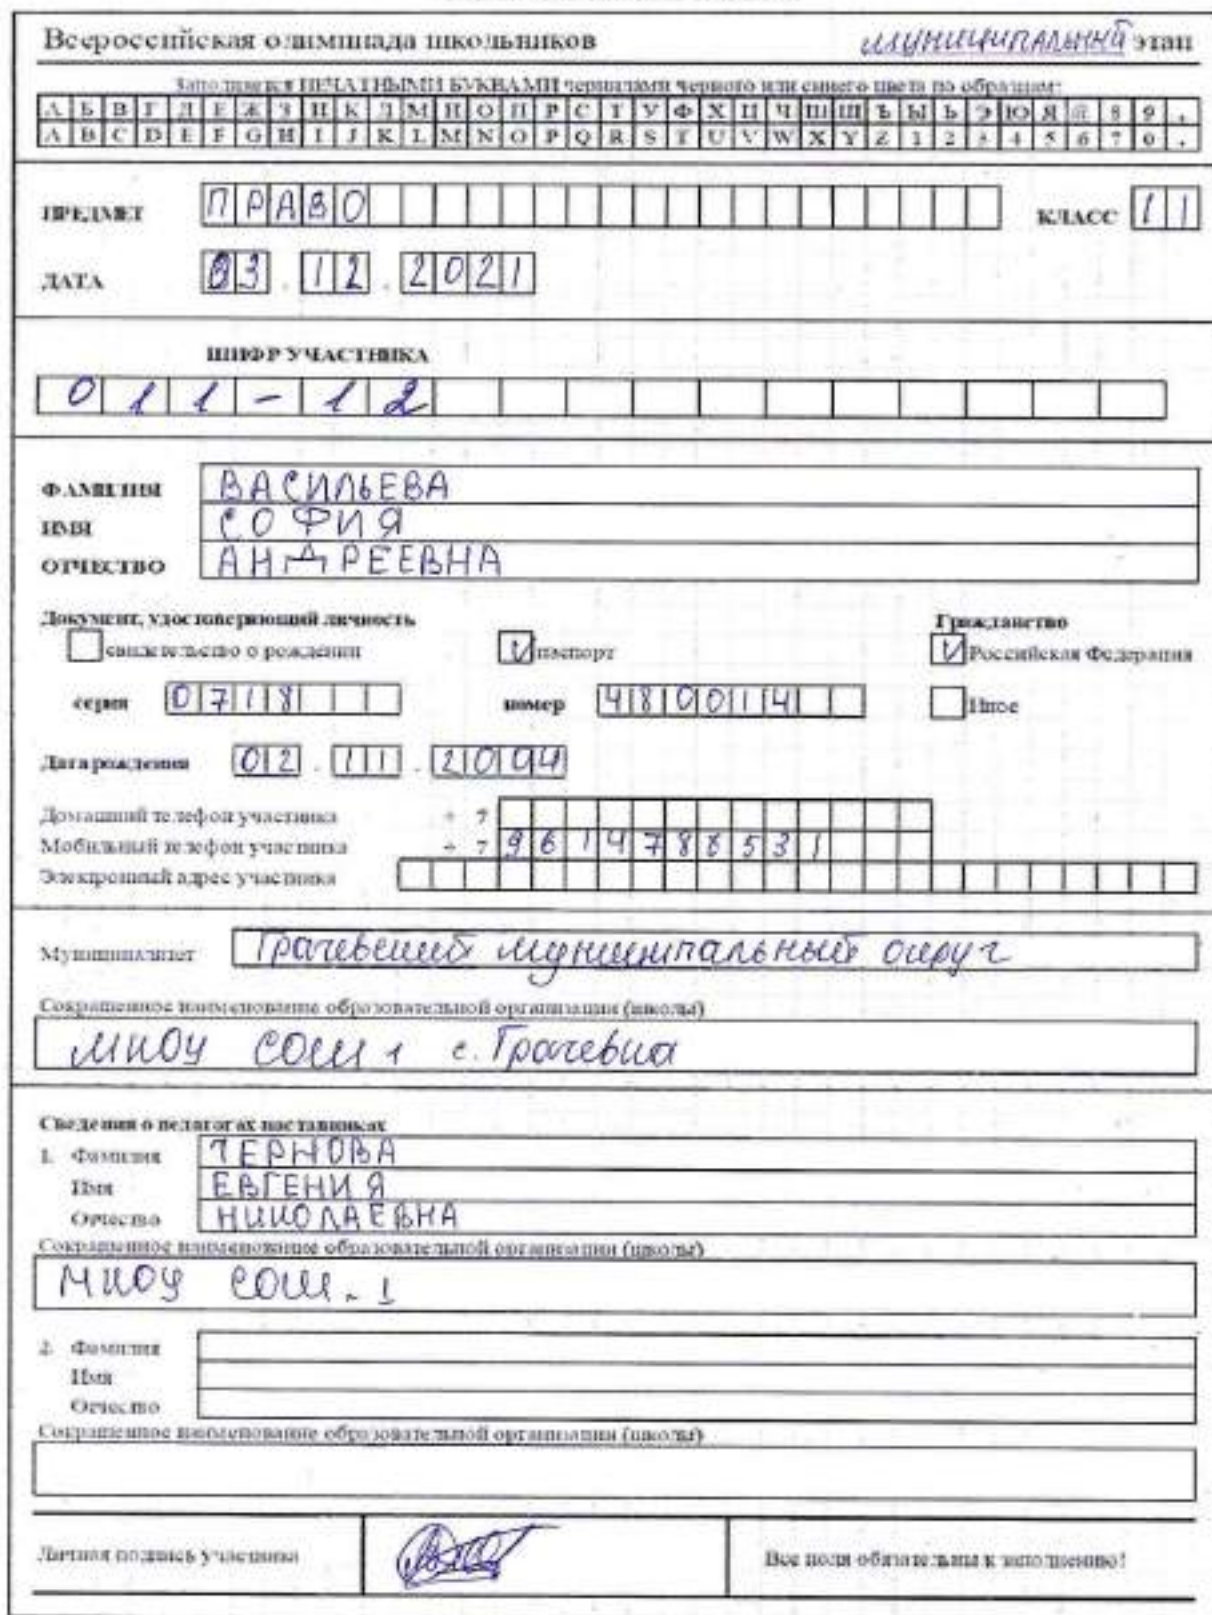 Всероссийская олимпиада школьников муниципальный этап
Заполняется ПЕЧАТНЫМИ БУКВАМИ чернилами черного или синего цвета по образцам:
А Б В Г Д Е Ж З И К Л М Н О П Р С Т У Ф Х Ц Ч Ш Щ Ъ Ы Ь Э Ю Я @ 8 9 ,
A B C D E F G H I J K L M N O P Q R S T U V W X Y Z 1 2 3 4 5 6 7 0 .
ПРЕДМЕТ ПРАВО КЛАСС 11
ДАТА 03.12.2021
ШИФР УЧАСТНИКА
011-12
ФАМИЛИЯ ВАСИЛЬЕВА
ИМЯ СОФИЯ
ОТЧЕСТВО АНДРЕЕВНА
Документ, удостоверяющий личность Гражданство
свидетельство о рождении паспорт Российская Федерация
серия 0718 номер 480014 Иное
Дата рождения 02.11.2004
Домашний телефон участника + 7
Мобильный телефон участника + 7 9614788531
Электронный адрес участника
Муниципалитет Грачевский муниципальный округ
Сокращенное наименование образовательной организации (школы)
МКОУ СОШ 1 с. Грачевка
Сведения о педагогах наставниках
1. Фамилия ЧЕРНОВА
Имя ЕВГЕНИЯ
Отчество НИКОЛАЕВНА
Сокращенное наименование образовательной организации (школы)
МКОУ СОШ 1
2. Фамилия
Имя
Отчество
Сокращенное наименование образовательной организации (школы)
Личная подпись участника Все поля обязательны к заполнению!